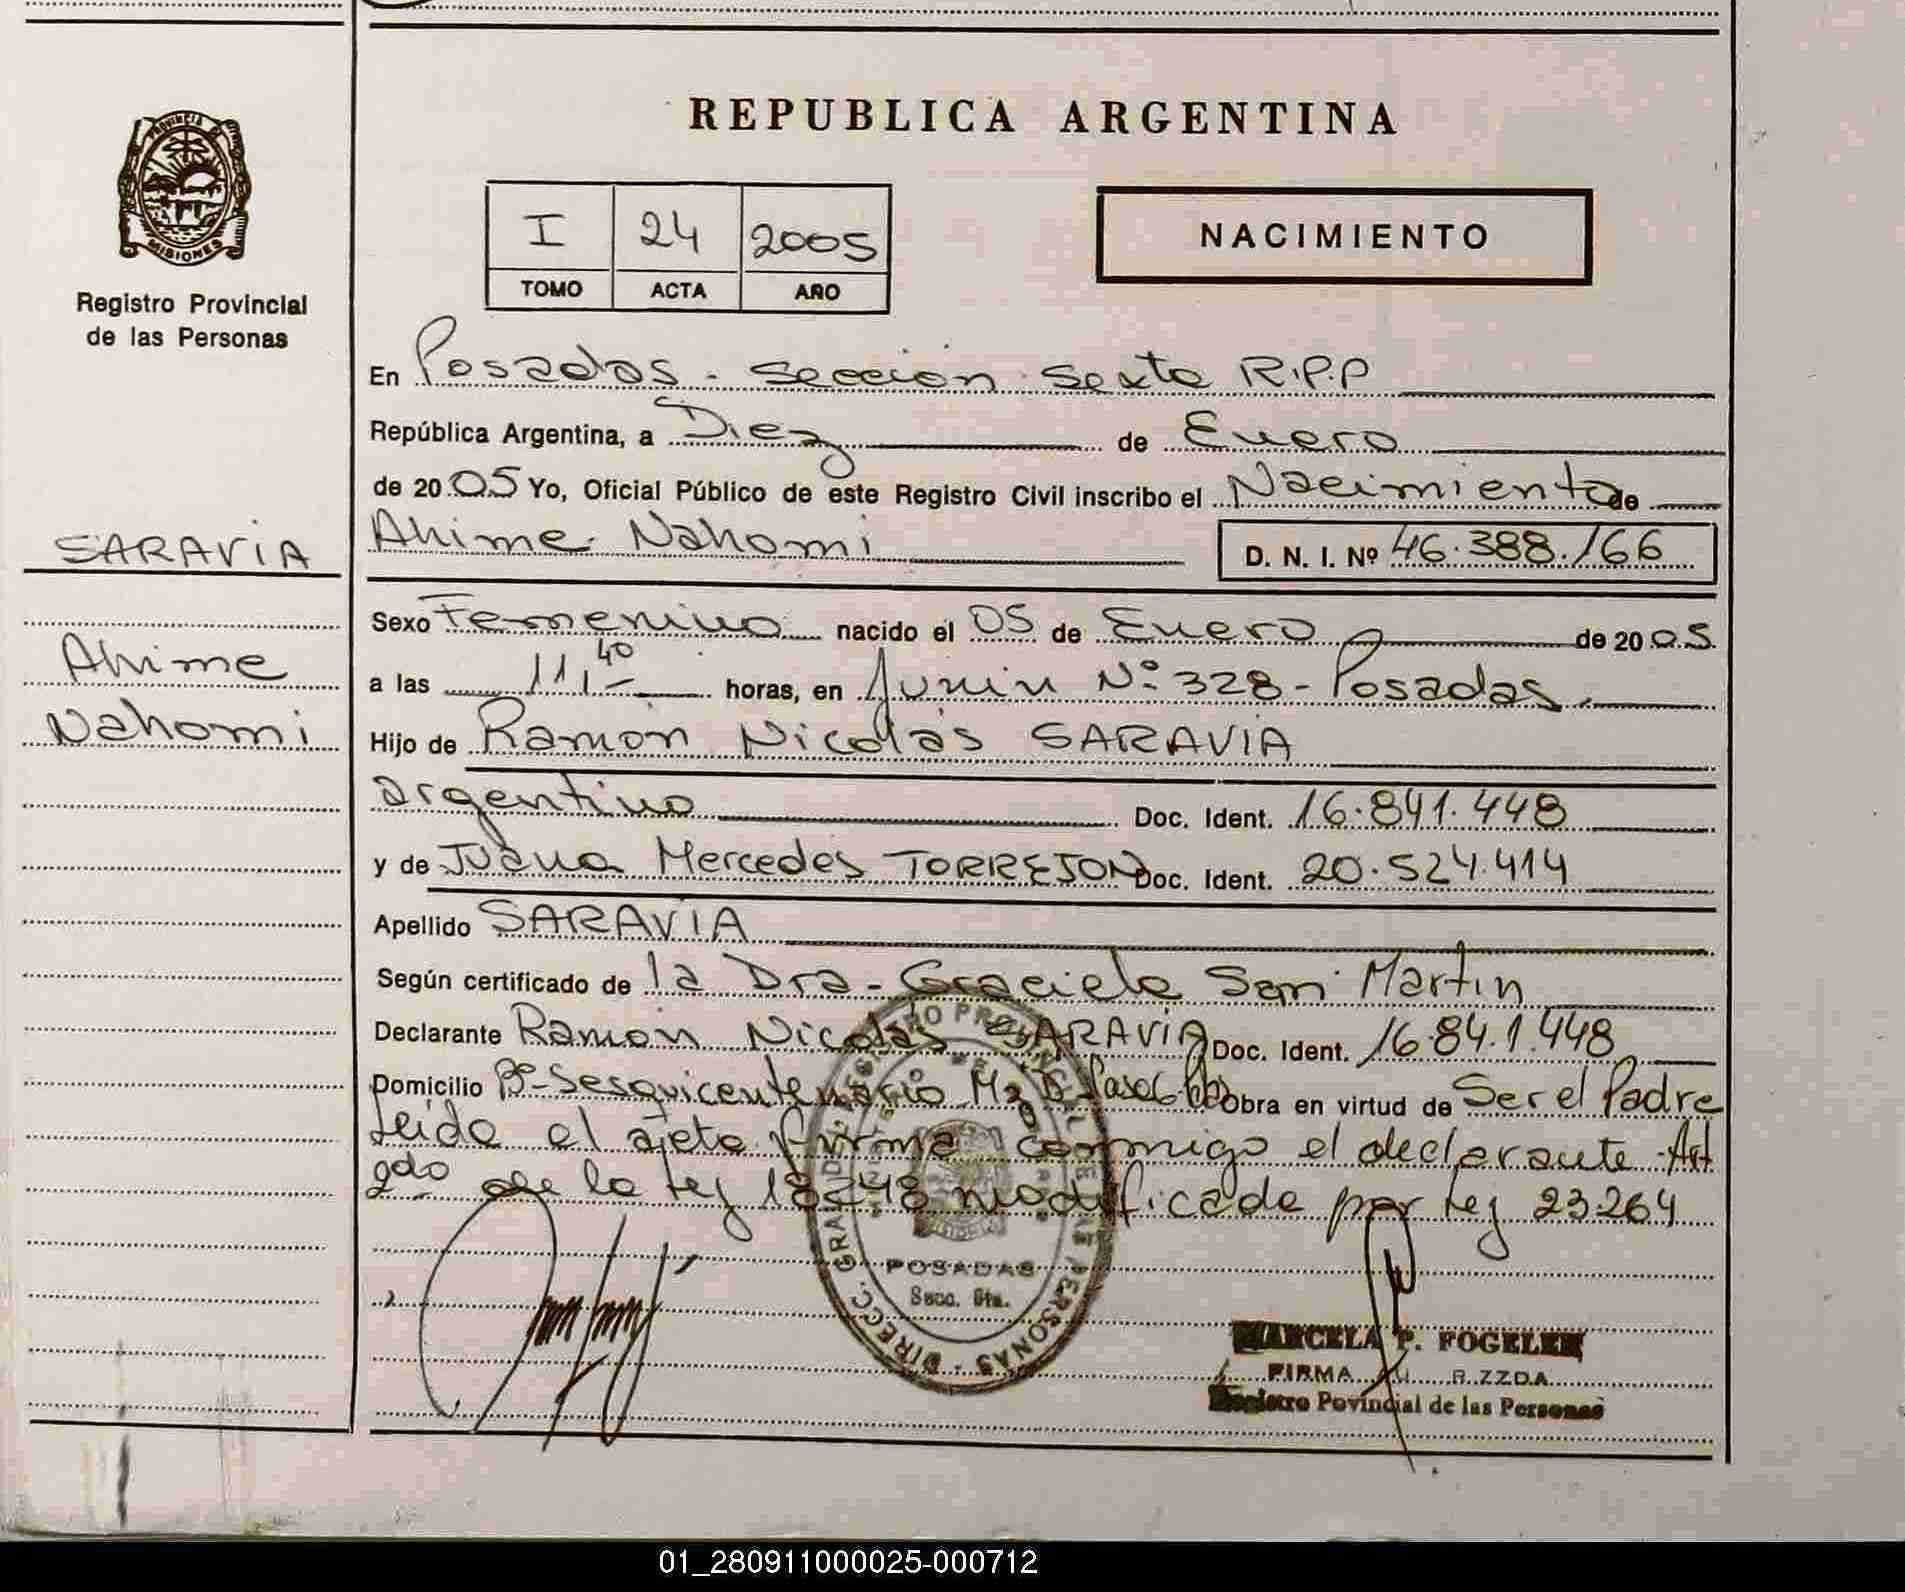 REPUBLICA ARGENTINA
PROVINCIA DE
MISIONES
Registro Provincial
de las Personas
I 24 2005
TOMO ACTA AÑO
NACIMIENTO
En Posadas - Sección Sexta R.P.P
República Argentina, a Diez de Enero
de 2005 Yo, Oficial Público de este Registro Civil inscribo el Nacimiento de
SARAVIA
Ahime Nahomi D. N. I. Nº 46.388.166
Sexo Femenino nacido el 05 de Enero de 2005.
Ahime
a las 11,40 horas, en Junin Nº 328 - Posadas.
Nahomi
Hijo de Ramón Nicolás SARAVIA
argentino Doc. Ident. 16.841.448
y de Juana Mercedes TORREJON Doc. Ident. 20.524.414
Apellido SARAVIA
Según certificado de la Dra. Graciela San Martin
Declarante Ramón Nicolás SARAVIA Doc. Ident. 16.841.448
Domicilio Bº Sesquicentenario Mz D Obra en virtud de Ser el Padre
Leida el acta firma conmigo el declarante Art
2do de la Ley 18248 modificada por Ley 23264
POSADAS
Secc. 6ta.
MARCELA P. FOGELER
FIRMA
Registro Povincial de las Personas
01_280911000025-000712